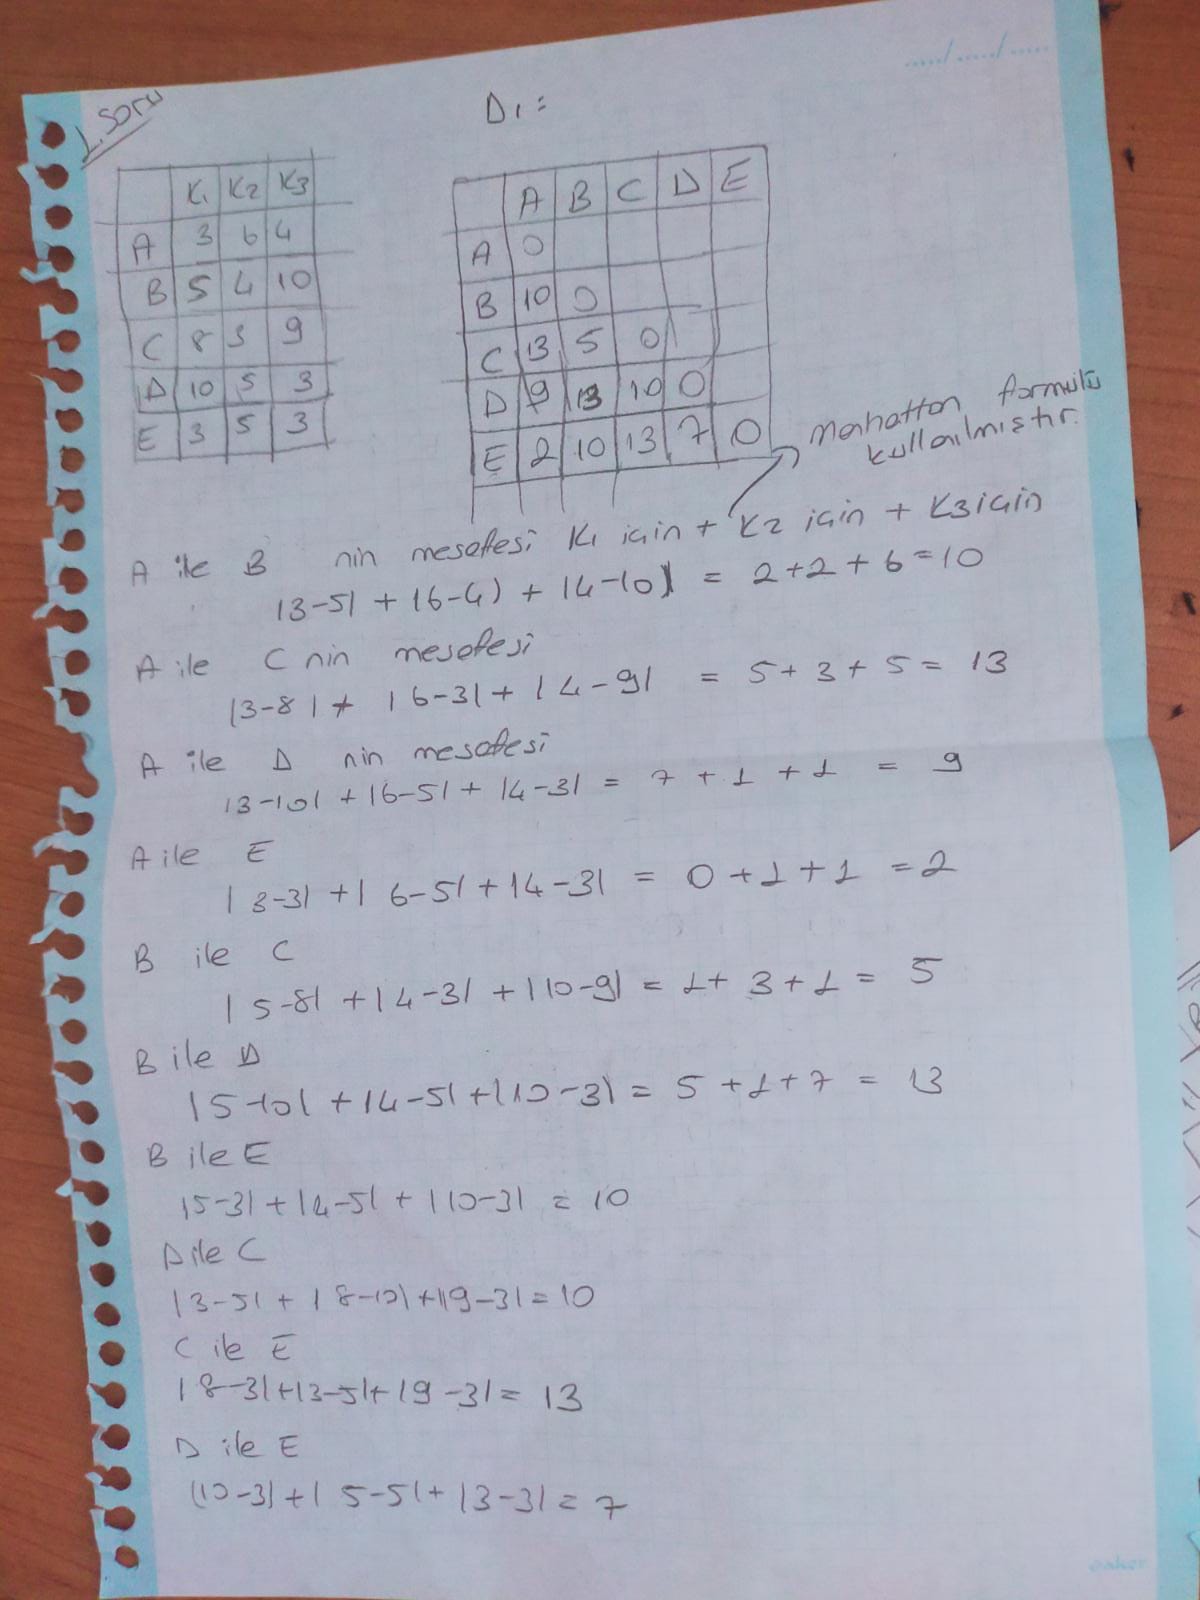 ...../...../.....
1. soru
D1 =
K1 K2 K3
A 3 6 4
B 5 4 10
C 8 3 9
D 10 5 3
E 3 5 3
A B C D E
A 0
B 10 0
C 13 5 0
D 9 13 10 0
E 2 10 13 7 0
Manhatton formülü
kullanılmıştır.
A ile B nin mesafesi K1 için + K2 için + K3 için
|3-5| + |6-4| + |4-10| = 2+2+6=10
A ile C nin mesafesi
|3-8| + |6-3| + |4-9| = 5+3+5= 13
A ile D nin mesafesi
|3-10| + |6-5| + |4-3| = 7+1+1 = 9
A ile E
|3-3| + |6-5| + |4-3| = 0+1+1 =2
B ile C
|5-8| + |4-3| + |10-9| = 1+3+1= 5
B ile D
|5-10| + |4-5| + |10-3| = 5+1+7 = 13
B ile E
|5-3| + |4-5| + |10-3| = 10
D ile C
|3-5| + |8-10| + |9-3| = 10
C ile E
|8-3| + |3-5| + |9-3| = 13
D ile E
|10-3| + |5-5| + |3-3| = 7